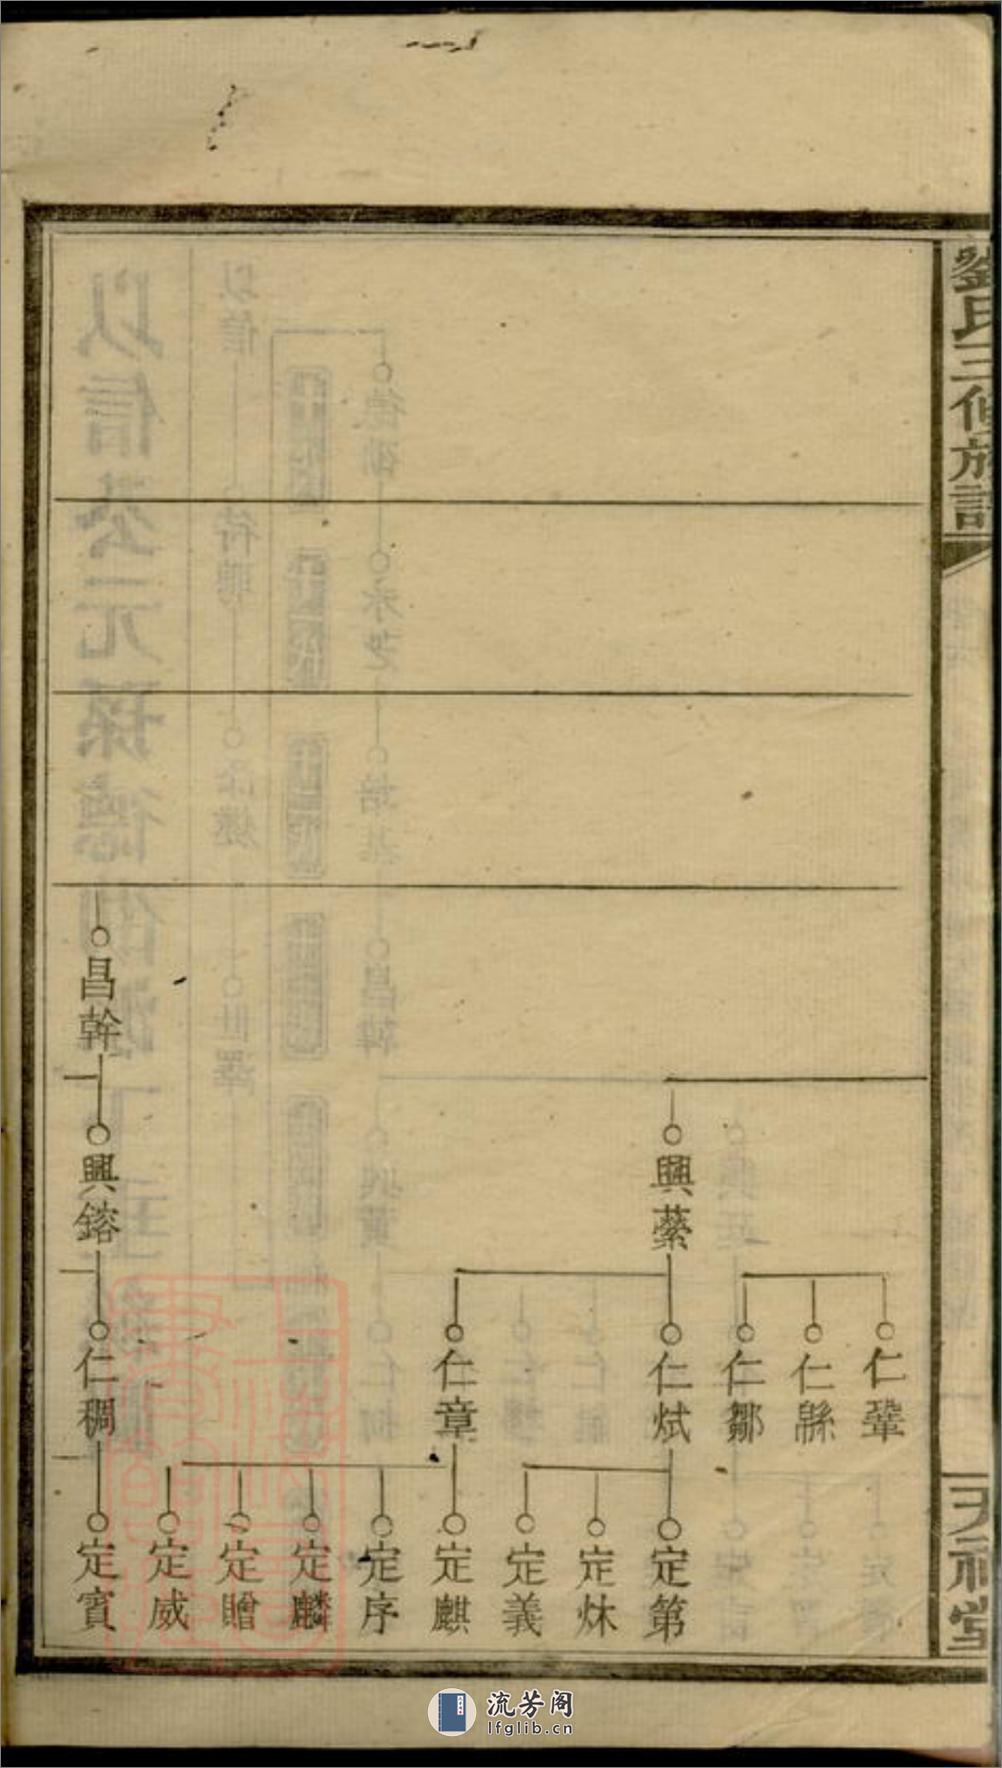 劉氏三修族譜
天祿堂
興縈
仁鞏
仁緜
仁鄒
仁斌
仁章
定第
定休
定義
定麒
定序
定麟
定贈
定威
昌幹
興鎔
仁稠
定賓
流芳阁
lfglib.cn